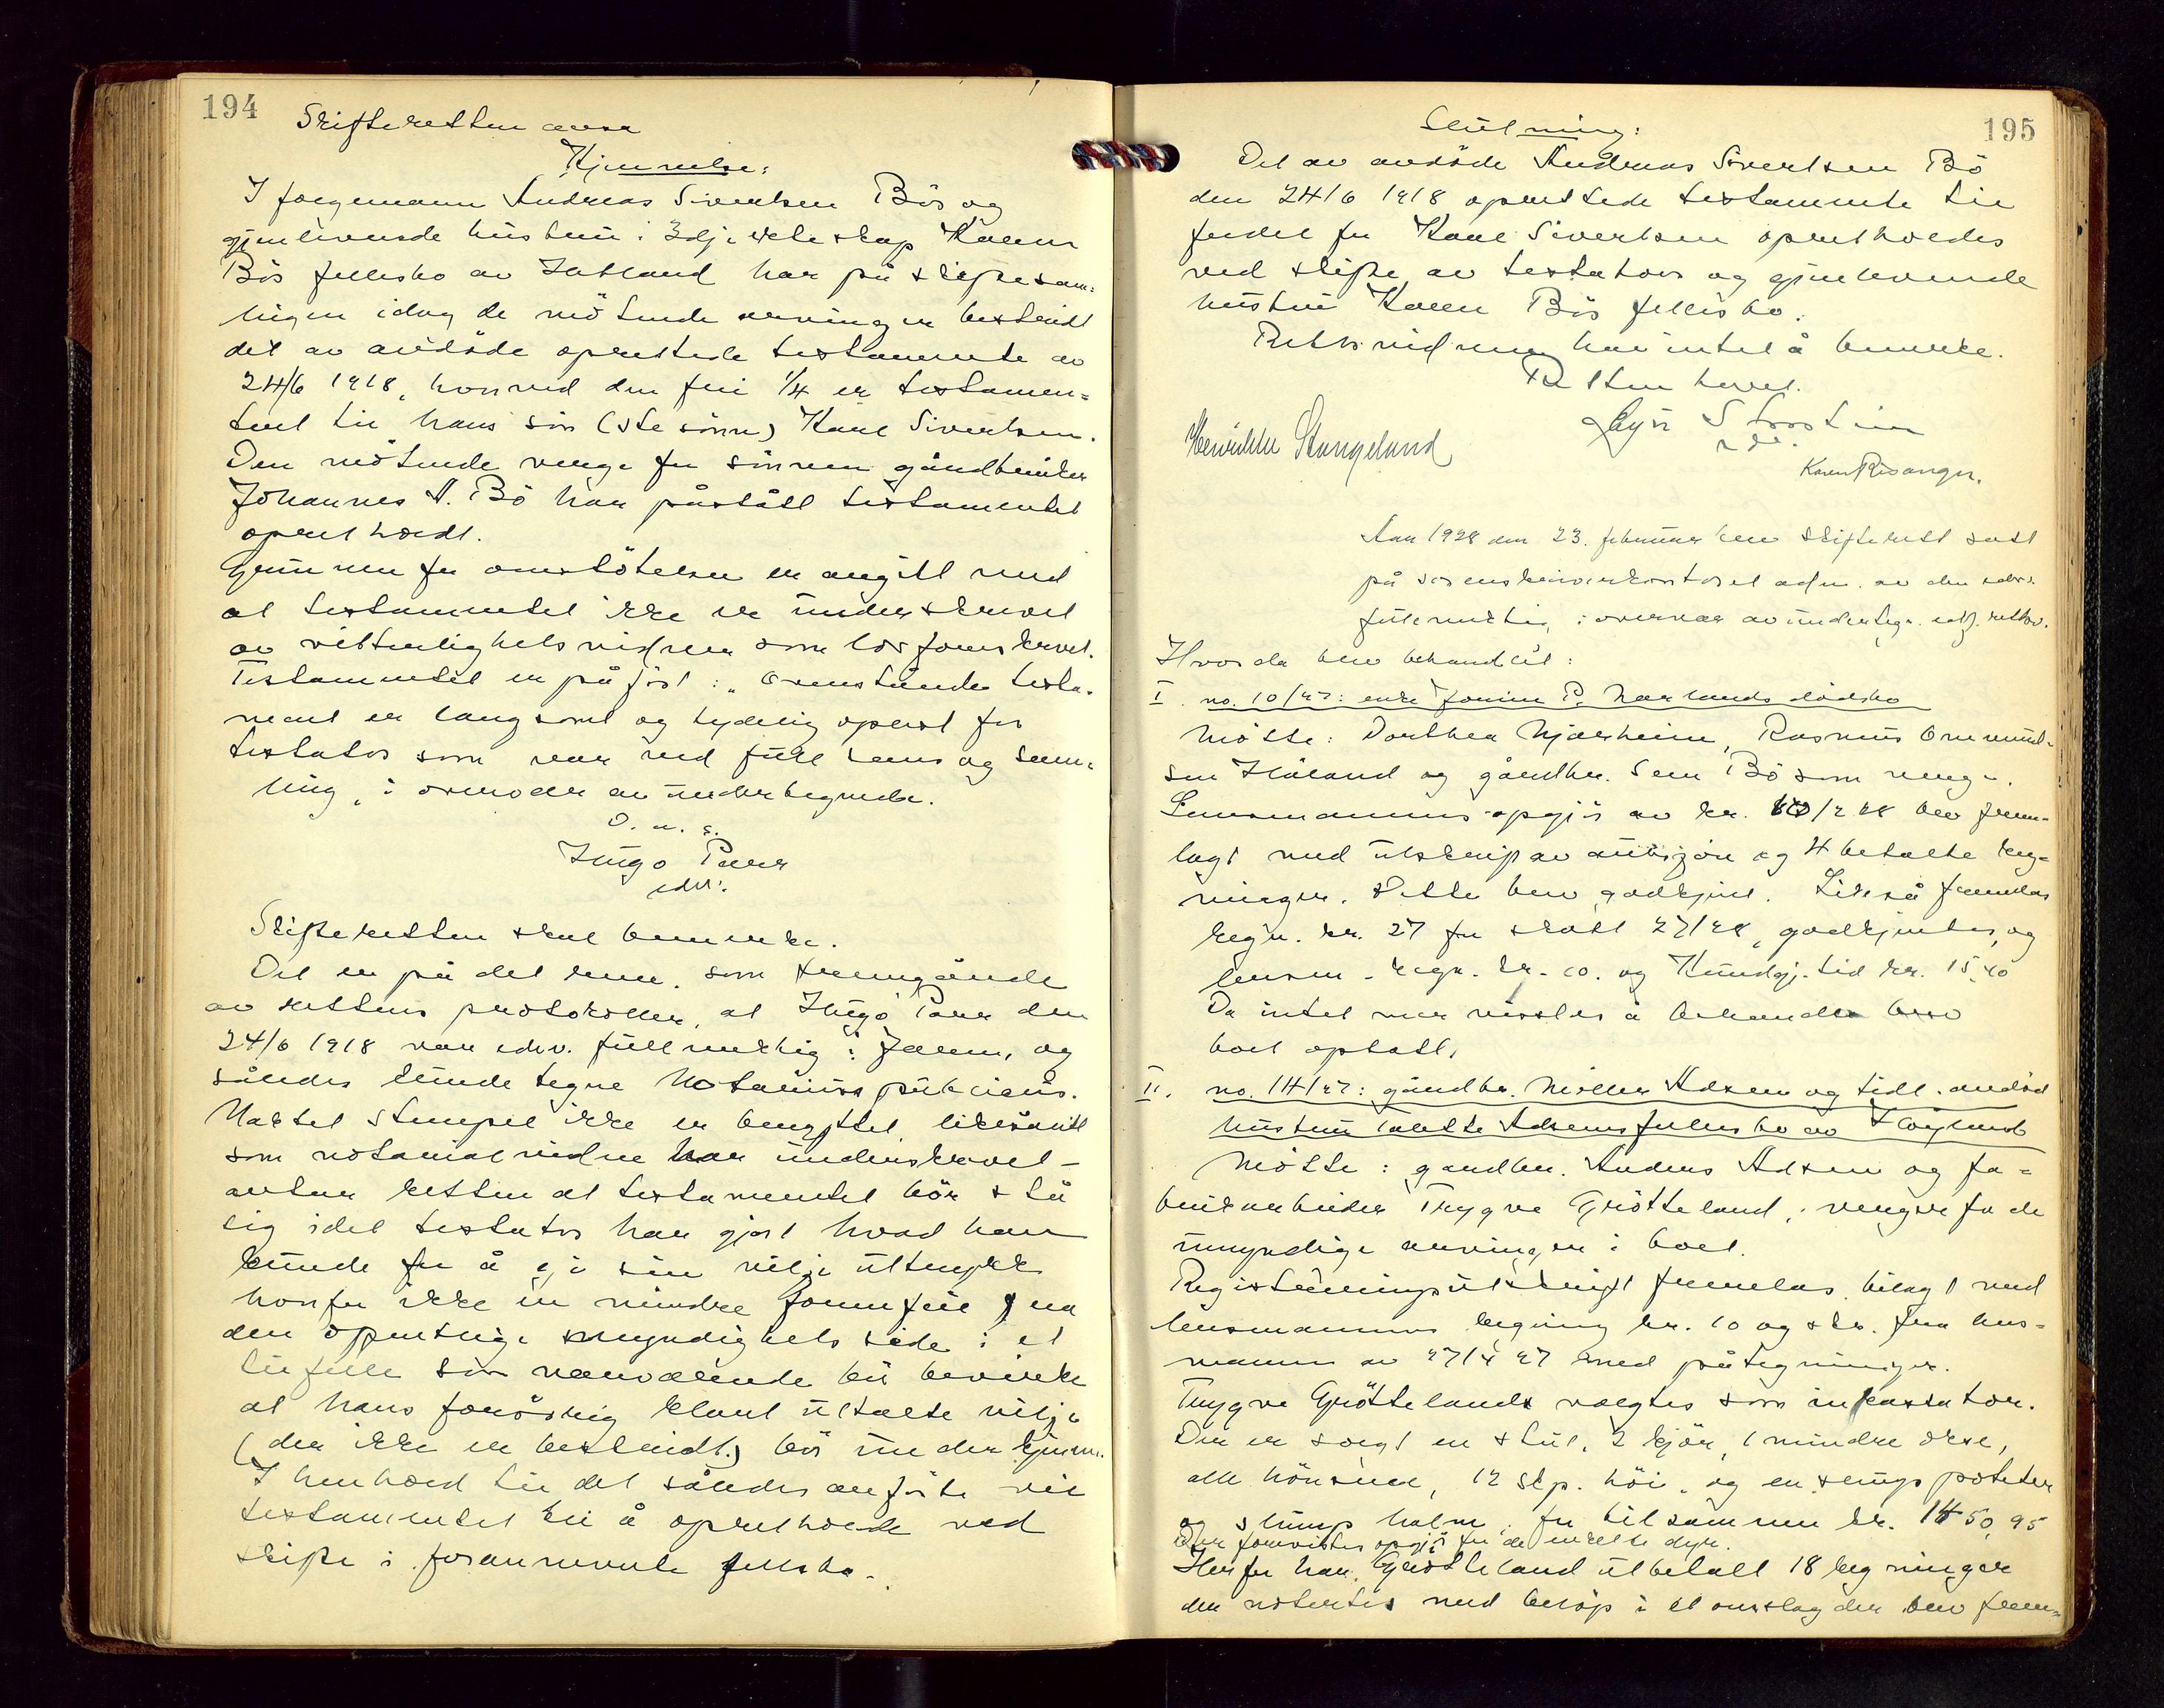 194
Skifteretten avsa
Kjennelse:
I forgemann Andreas Sivertsen Bös og
gjenlevende hustru i 3dje ekteskap Karen
Bös fellesbo av Jatland har på skiftesam-
lingen idag de mötende arvinger bestridt
det av avdöde oprettede testamente av
24/6 1918, hvorved den frie 1/4 er testamen-
tert til hans sön (stesönn) Karl Sivertsen.
Den mötende verge for sönnen gårdbruker
Johannes A. Bö har påstått testamentet
oprettholdt.
Grunnen for omstötelsen er angitt ved
at testamentet ikke er underskrevet
av vitterlighetsvidner som lov foreskrevet.
Testamentet er påfört: "Ovenstående testa-
ment er langsomt og tydelig oplest for
testator som var ved full sans og sam-
ling, i overvær av undertegnede.
D. u. s.
Hugo Parr
edsv.
Skifteretten skal bemerke.
Det er på det rene, som fremgående
av rettens protokoller, at Hugo Parr den
24/6 1918 var edsv. fullmektig i Jæren, og
således kunde tegne Notarius publicus.
Uaktet stempel ikke er benyttet, likesåvitt
som notarialvidne har underskrevet -
antar retten at testamentet bör stå
sig idet testator har gjort hvad han
kunde for å gi sin vilje uttrykk
hvorfor ikke en mindre formfeil fra
den offentlige myndighets side i et
tilfelle som nærværende bör bevirke
at hans forövrig klart uttalte vilje
(der ikke er bestridt) bör underkjennes.
I henhold til det således anförte vil
testamentet bli å oprettholde ved
skifte i forannevnte fellesbo.
195
Slutning:
Det av avdöde Andreas Sivertsen Bö
den 24/6 1918 oprettede testamente til
fordel for Karl Sivertsen oprettholdes
ved skifte av testators og gjenlevende
hustru Karen Bös fellesbo.
Rettsvidnene har intet å bemerke.
Retten hevet.
Henrikke Stangeland
Karen Risanger.
Aar 1928 den 23. februar blev skifterett satt
på sorenskriverkontoret adm. av den edsv.
fullmektig, i overvær av undertegn. edf. rettsv.
Hvor da blev behandlet:
I. no. 10/27: enke Jonine P. Haarlands dödsbo
Mötte: Dorthea Njærheim, Rasmus Ommund-
sen Håland og gårdbr. Sem Bö som verge.
Lensmannens opgjör av kr. 10/2 28 blev frem-
lagt med utskrift av auksjon og 4 betalte reg-
ninger. Dette blev godkjent. Likeså fremlas
regn. kr. 27 for skatt 27/28, godkjentes, og
lensm. regn. kr. 10. og Kundgj. tid kr. 15,40
Da intet mer visstes å behandle blev
boet opsatt.
II. no. 14/27: gårdbr. Möller Adsen og tidl. avdöd
hustru Adsens fellesbo av Höyland
Mötte: gårdbr. Anders Adsen og fa-
brikarbeider Trygve Grötteland, i verger for de
umyndige arvinger i boet.
Registreringsutskrift fremlas, bilagt med
lensmannens regning kr. 10 og skr. fra lens-
mannen av 27/4 27 med påtegninger.
Trygve Gröttelands valgtes som inkassator.
Der er solgt en stut, 2 kjör, 1 mindre okse,
alle hönsene, 12 skp. höi, og en slump poteter
og slump halm, for tilsammen kr. 1450,95
Der forevistes opgjör for de enkelte dyr.
Herfor har Grötteland utbetalt 18 regninger
der notertes med belöp i et omslag der blev frem-